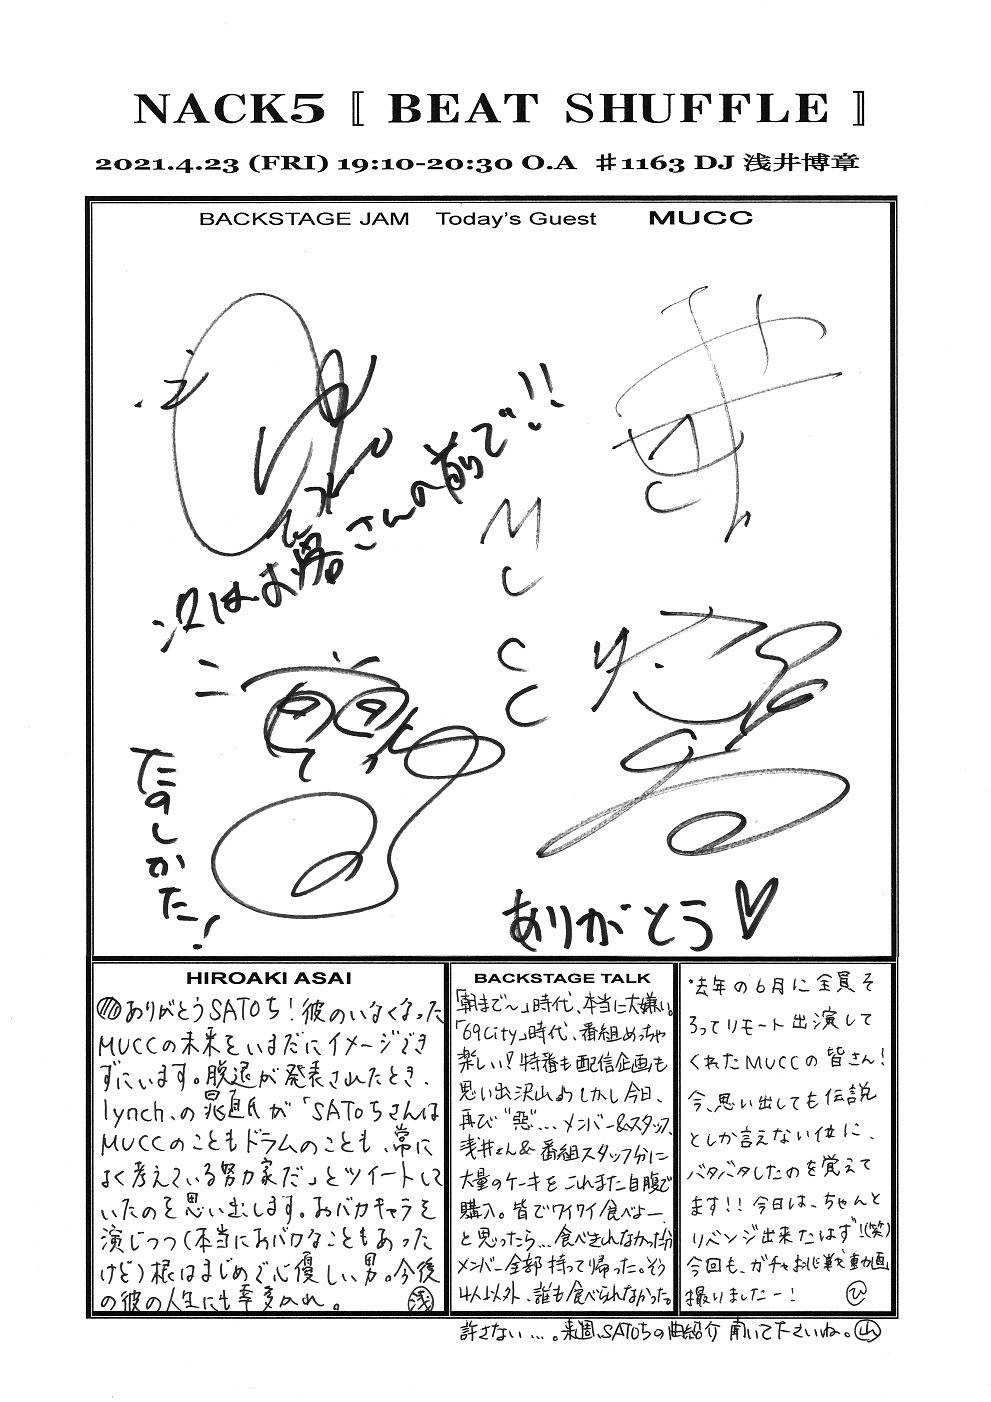 NACK5 〚 BEAT SHUFFLE 〛
2021.4.23 (FRI) 19:10-20:30 O.A ♯1163 DJ 浅井博章
BACKSTAGE JAM Today's Guest MUCC
涙はお客さんの前で!!
MUCC
たのしかた!
ありがとう♡
HIROAKI ASAI
ありがとうSATOち!彼のいなくなった
MUCCの未来をいまだにイメージでき
ずにいます。脱退が発表されたとき、
lynch.の晁直氏が「SATOちさんは
MUCCのこともドラムのことも、常に
よく考えている努力家だ」とツイートして
いたのを思い出します。おバカキャラを
演じつつ(本当におバカなこともあった
けど)根はまじめで心優しい男。今後
の彼の人生にも幸多かれ。 浅
BACKSTAGE TALK
「朝まで〜」時代、本当に大嫌い。
「69City」時代、番組めっちゃ
楽しい!?特番も配信企画も
思い出沢山よ しかし今日、
再び“悪…メンバー&スタッフ、
浅井さん&番組スタッフ分に
大量のケーキを これまた自腹で
購入。皆でワイワイ食べよー
と思ったら…食べきれなかった分
メンバー全部持って帰った。そう
4人以外、誰も食べられなかった。
許さない…。来週、SATOちの曲紹介 聞いて下さいね。山
去年の6月に全員そ
ろってリモート出演して
くれたMUCCの皆さん!
今、思い出しても伝説
としか言えない位に、
バタバタしたのを覚えて
ます!!今日は、ちゃんと
リベンジ出来たはず!(笑)
今回も、ガチャお心戦動画
撮りましたー! ひ